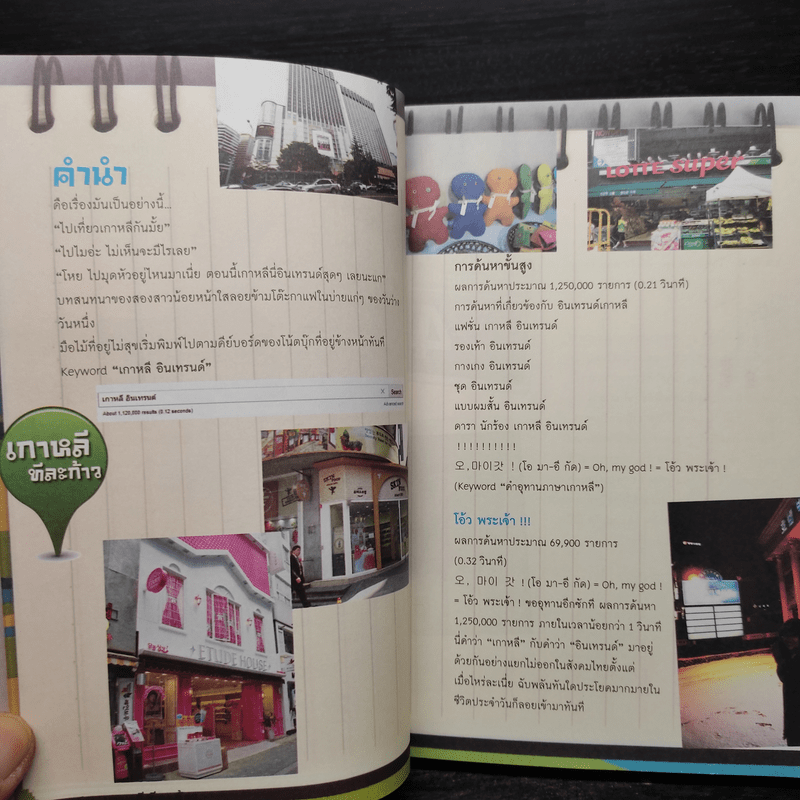 คำนำ
คือเรื่องมันเป็นอย่างนี้...
“ไปเที่ยวเกาหลีกันมั้ย”
“ไปไมอ่ะ ไม่เห็นจะมีไรเลย”
“โหย ไปมุดหัวอยู่ไหนมาเนี่ย ตอนนี้เกาหลีนี่อินเทรนด์สุดๆ เลยนะแก”
บทสนทนาของสองสาวน้อยหน้าใสลอยข้ามโต๊ะกาแฟในบ่ายแก่ๆ ของวันว่าง
วันหนึ่ง
มือไม้ที่อยู่ไม่สุขเริ่มพิมพ์ไปตามคีย์บอร์ดของโน้ตบุ๊กที่อยู่ข้างหน้าทันที
Keyword “เกาหลี อินเทรนด์”
เกาหลี อินเทรนด์
Search
About 1,120,000 results (0.12 seconds)
Advanced search
เกาหลี
ทีละก้าว
SKIN
FOOD
ETUDE HOUSE
LOTTE super
การค้นหาขั้นสูง
ผลการค้นหาประมาณ 1,250,000 รายการ (0.21 วินาที)
การค้นหาที่เกี่ยวข้องกับ อินเทรนด์เกาหลี
แฟชั่น เกาหลี อินเทรนด์
รองเท้า อินเทรนด์
กางเกง อินเทรนด์
ชุด อินเทรนด์
แบบผมสั้น อินเทรนด์
ดารา นักร้อง เกาหลี อินเทรนด์
! ! ! ! ! ! ! ! ! !
오,마이갓 ! (โอ มา-อี กัด) = Oh, my god ! = โอ้ว พระเจ้า !
(Keyword “คำอุทานภาษาเกาหลี”)
โอ้ว พระเจ้า !!!
ผลการค้นหาประมาณ 69,900 รายการ
(0.32 วินาที)
오, 마이 갓 ! (โอ มา-อี กัด) = Oh, my god !
= โอ้ว พระเจ้า ! ขออุทานอีกซักที ผลการค้นหา
1,250,000 รายการ ภายในเวลาน้อยกว่า 1 วินาที
นี่คำว่า “เกาหลี” กับคำว่า “อินเทรนด์” มาอยู่
ด้วยกันอย่างแยกไม่ออกในสังคมไทยตั้งแต่
เมื่อไหร่ละเนี่ย ฉับพลันทันใดประโยคมากมายใน
ชีวิตประจำวันก็ลอยเข้ามาทันที